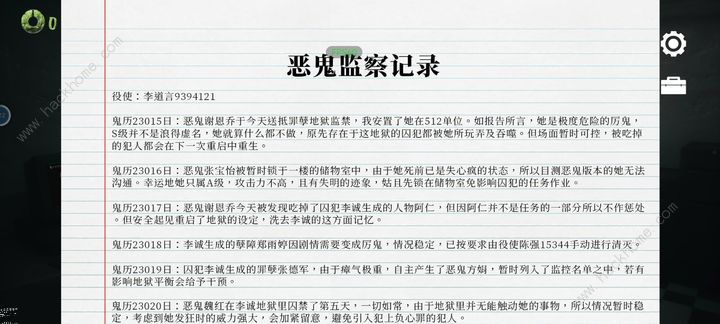 0
恶鬼监察记录
役使：李道言9394121
鬼历23015日：恶鬼谢恩乔于今天送抵罪孽地狱监禁，我安置了她在512单位。如报告所言，她是极度危险的厉鬼，
S级并不是浪得虚名，她就算什么都不做，原先存在于这地狱的囚犯都被她所玩弄及吞噬。但场面暂时可控，被吃掉
的犯人都会在下一次重启中重生。
鬼历23016日：恶鬼张宝怡被暂时锁于一楼的储物室中，由于她死前已是失心疯的状态，所以目测恶鬼版本的她无法
沟通。幸运地她只属A级，攻击力不高，且有失明的迹象，姑且先锁在储物室免影响囚犯的任务作业。
鬼历23017日：恶鬼谢恩乔今天被发现吃掉了囚犯李诚生成的人物阿仁，但因阿仁并不是任务的一部分所以不作惩处
。但安全起见重启了地狱的设定，洗去李诚的这方面记忆。
鬼历23018日：李诚生成的孽障郑雨婷因剧情需要变成厉鬼，情况稳定，已按要求由役使陈强15344手动进行清灭。
鬼历23019日：囚犯李诚生成的罪孽张德军，由于瘴气极重，自主产生了恶鬼方娟，暂时列入了监控名单之中，若有
影响地狱平衡会给予干预。
鬼历23020日：恶鬼魏红在李诚地狱里囚禁了第五天，一切如常，由于地狱里并无能触动她的事物，所以情况暂时稳
定，考虑到她发狂时的威力强大，会加紧留意，避免引入犯上负心罪的犯人。
www.hackhome.com